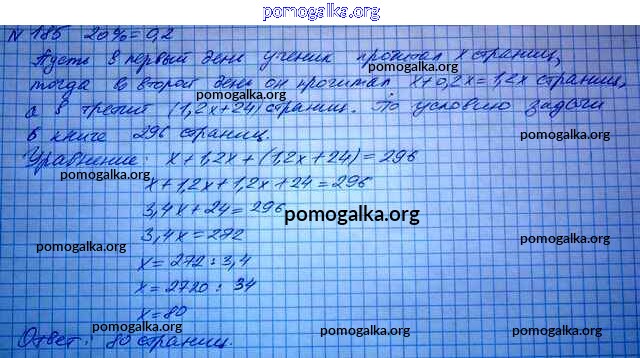 pomogalka.org
N 185 20% = 0,2
Пусть в первый день ученик прочитал x страниц,
тогда во второй день он прочитал x+0,2x=1,2x страниц,
pomogalka.org
pomogalka.org
а в третий (1,2x+24) страниц. По условию задачи
в книге 296 страниц.
pomogalka.org
Уравнение: x+1,2x+(1,2x+24)=296
pomogalka.org
pomogalka.org
x+1,2x+1,2x+24=296
3,4x+24=296
pomogalka.org
3,4x=272
pomogalka.org
pomogalka.org
x=272:3,4
x=2720:34
x=80
pomogalka.org
pomogalka.org
Ответ: 80 страниц.
pomogalka.org